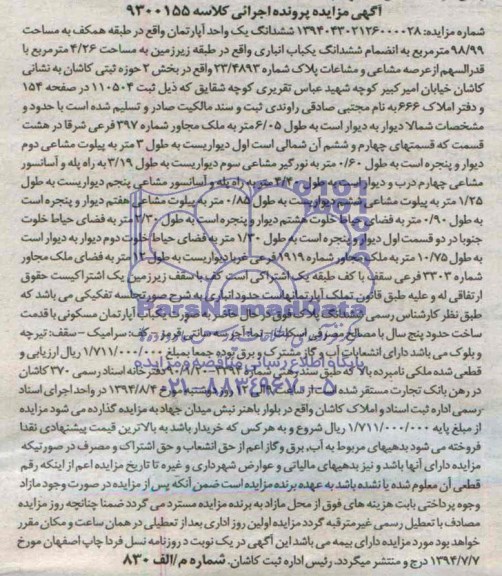 آگهی مزایده پرونده اجرائی کلاسه ۹۳۰۰۱۵۵
شماره مزایده: ۱۳۹۴۰۴۳۰۲۱۲۶۰۰۰۰۲۸ ششدانگ یک واحد آپارتمان واقع در طبقه همکف به مساحت
۹۸/۹۹ مترمربع به انضمام ششدانگ یکباب انباری واقع در طبقه زیرزمین به مساحت ۴/۲۶ مترمربع با
قدرالسهم از عرصه مشاعی و مشاعات پلاک شماره ۲۳/۴۸۹۳ واقع در بخش ۲ حوزه ثبتی کاشان به نشانی
کاشان خیابان امیرکبیر کوچه شهید عباس تقریری کوچه شقایق که ذیل ثبت ۱۱۰۵۰۴ در صفحه ۱۵۴
و دفتر املاک ۶۶۶ به نام مجتبی صادقی راوندی ثبت و سند مالکیت صادر و تسلیم شده است با حدود و
مشخصات شمالا دیوار به دیوار است به طول ۶/۰۵ متر به ملک مجاور شماره ۳۹۷ فرعی شرقا در هشت
قسمت که قسمتهای چهارم و ششم آن شمالی است اول دیواریست به طول ۳ متر به پیلوت مشاعی دوم
دیوار و پنجره است به طول ۰/۶۰ متر به نورگیر مشاعی سوم دیواریست به طول ۳/۱۹ به راه پله و آسانسور
مشاعی چهارم درب و دیوار است به طول متر به راه پله و آسانسور مشاعی پنجم دیواریست به طول
۱/۲۵ متر به پیلوت مشاعی ششم دیواریست به طول ۰/۸۵ متر به پیلوت مشاعی هفتم دیوار و پنجره است
به طول ۰/۹۰ متر به فضای حیاط خلوت هشتم دیوار و پنجره است به طول ۲/۳۰ متر به فضای حیاط خلوت
جنوبا در دو قسمت اول دیوار و پنجره است به طول ۱/۳۰ متر به فضای حیاط خلوت دوم دیوار به دیوار است
به طول ۱۰/۷۵ متر به ملک مجاور شماره ۸۹۱۹ فرعی غربا دیواریست به طول متر به فضای ملک مجاور
شماره ۳۳۰۳ فرعی سقف با کف طبقه یک اشتراکی است کف با سقف زیرزمین یک اشتراکیست حقوق
ارتفاقی له و علیه طبق قانون تملک آپارتمانهاست حدود انباری به شرح صورتجلسه تفکیکی می باشد که
طبق نظر کارشناس رسمی ششدانگ پلاک فوق در حال حاضر به صورت یکباب آپارتمان مسکونی با قدمت
ساخت حدود پنج سال با مصالح مصرفی اسکلت نما: آجر سه سانتی قرمز - کف: سرامیک - سقف: تیرچه
و بلوک می باشد دارای انشعابات آب و گاز مشترک و برق بوده جمعا بمبلغ ۱/۷۱۱/۰۰۰/۰۰۰ ریال ارزیابی و
قطعی شده ملکی نامبرده بالا که طبق سند رهنی شماره دفترخانه اسناد رسمی ۳۷۰ کاشان
در رهن بانک تجارت مستقر شده است از ساعت ۹ الی ۱۲ روز مورخ ۱۳۹۴/۸/۳ در واحد اجرای اسناد
رسمی اداره ثبت اسناد و املاک کاشان واقع در بلوار باهنر نبش میدان جهاد به مزایده گذارده می شود مزایده
از مبلغ پایه ۱/۷۱۱/۰۰۰/۰۰۰ ریال شروع و به هر کس که خریدار باشد به بالاترین قیمت پیشنهادی نقدا
فروخته می شود بدهیهای مربوط به آب، برق و گاز اعم از حق انشعاب و حق اشتراک و مصرف در صورتیکه
مزایده دارای آنها باشد و نیز بدهیهای مالیاتی و عوارض شهرداری و غیره تا تاریخ مزایده اعم از اینکه رقم
قطعی آن معلوم شده یا نشده باشد به عهده برنده مزایده است ضمن آنکه پس از مزایده در صورت وجود مازاد
وجوه پرداختی بابت هزینه های فوق از محل مازاد به برنده مزایده مسترد می گردد ضمنا چنانچه روز مزایده
مصادف با تعطیل رسمی غیر مترقبه گردد مزایده اولین روز اداری بعد از تعطیلی در همان ساعت و مکان مقرر
خواهد بود مورد مزایده دارای بیمه می باشد این آگهی در یک نوبت در روزنامه نسل فردا چاپ اصفهان مورخ
۱۳۹۴/۷/۷ درج و منتشر میگردد. رئیس اداره ثبت کاشان. شماره م/الف ۸۳۰
ParsNamadData
پایگاه اطلاع رسانی مناقصه و مزایده
۰۲۱-۸۸۳۴۹۶۷۰-۵